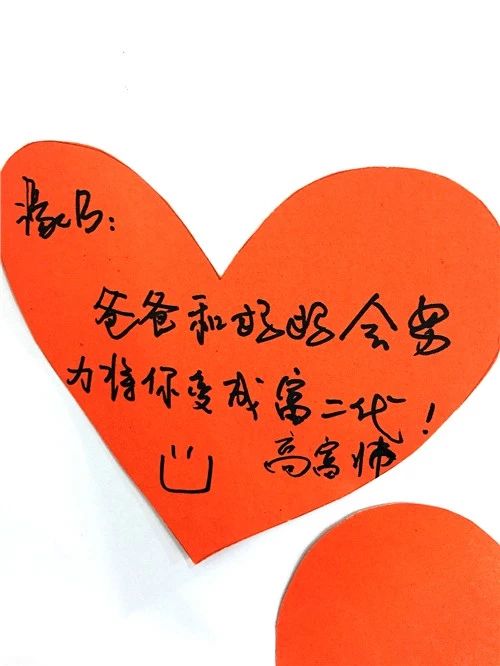 爸爸和妈妈会努
力将你变成富二代!
高富帅